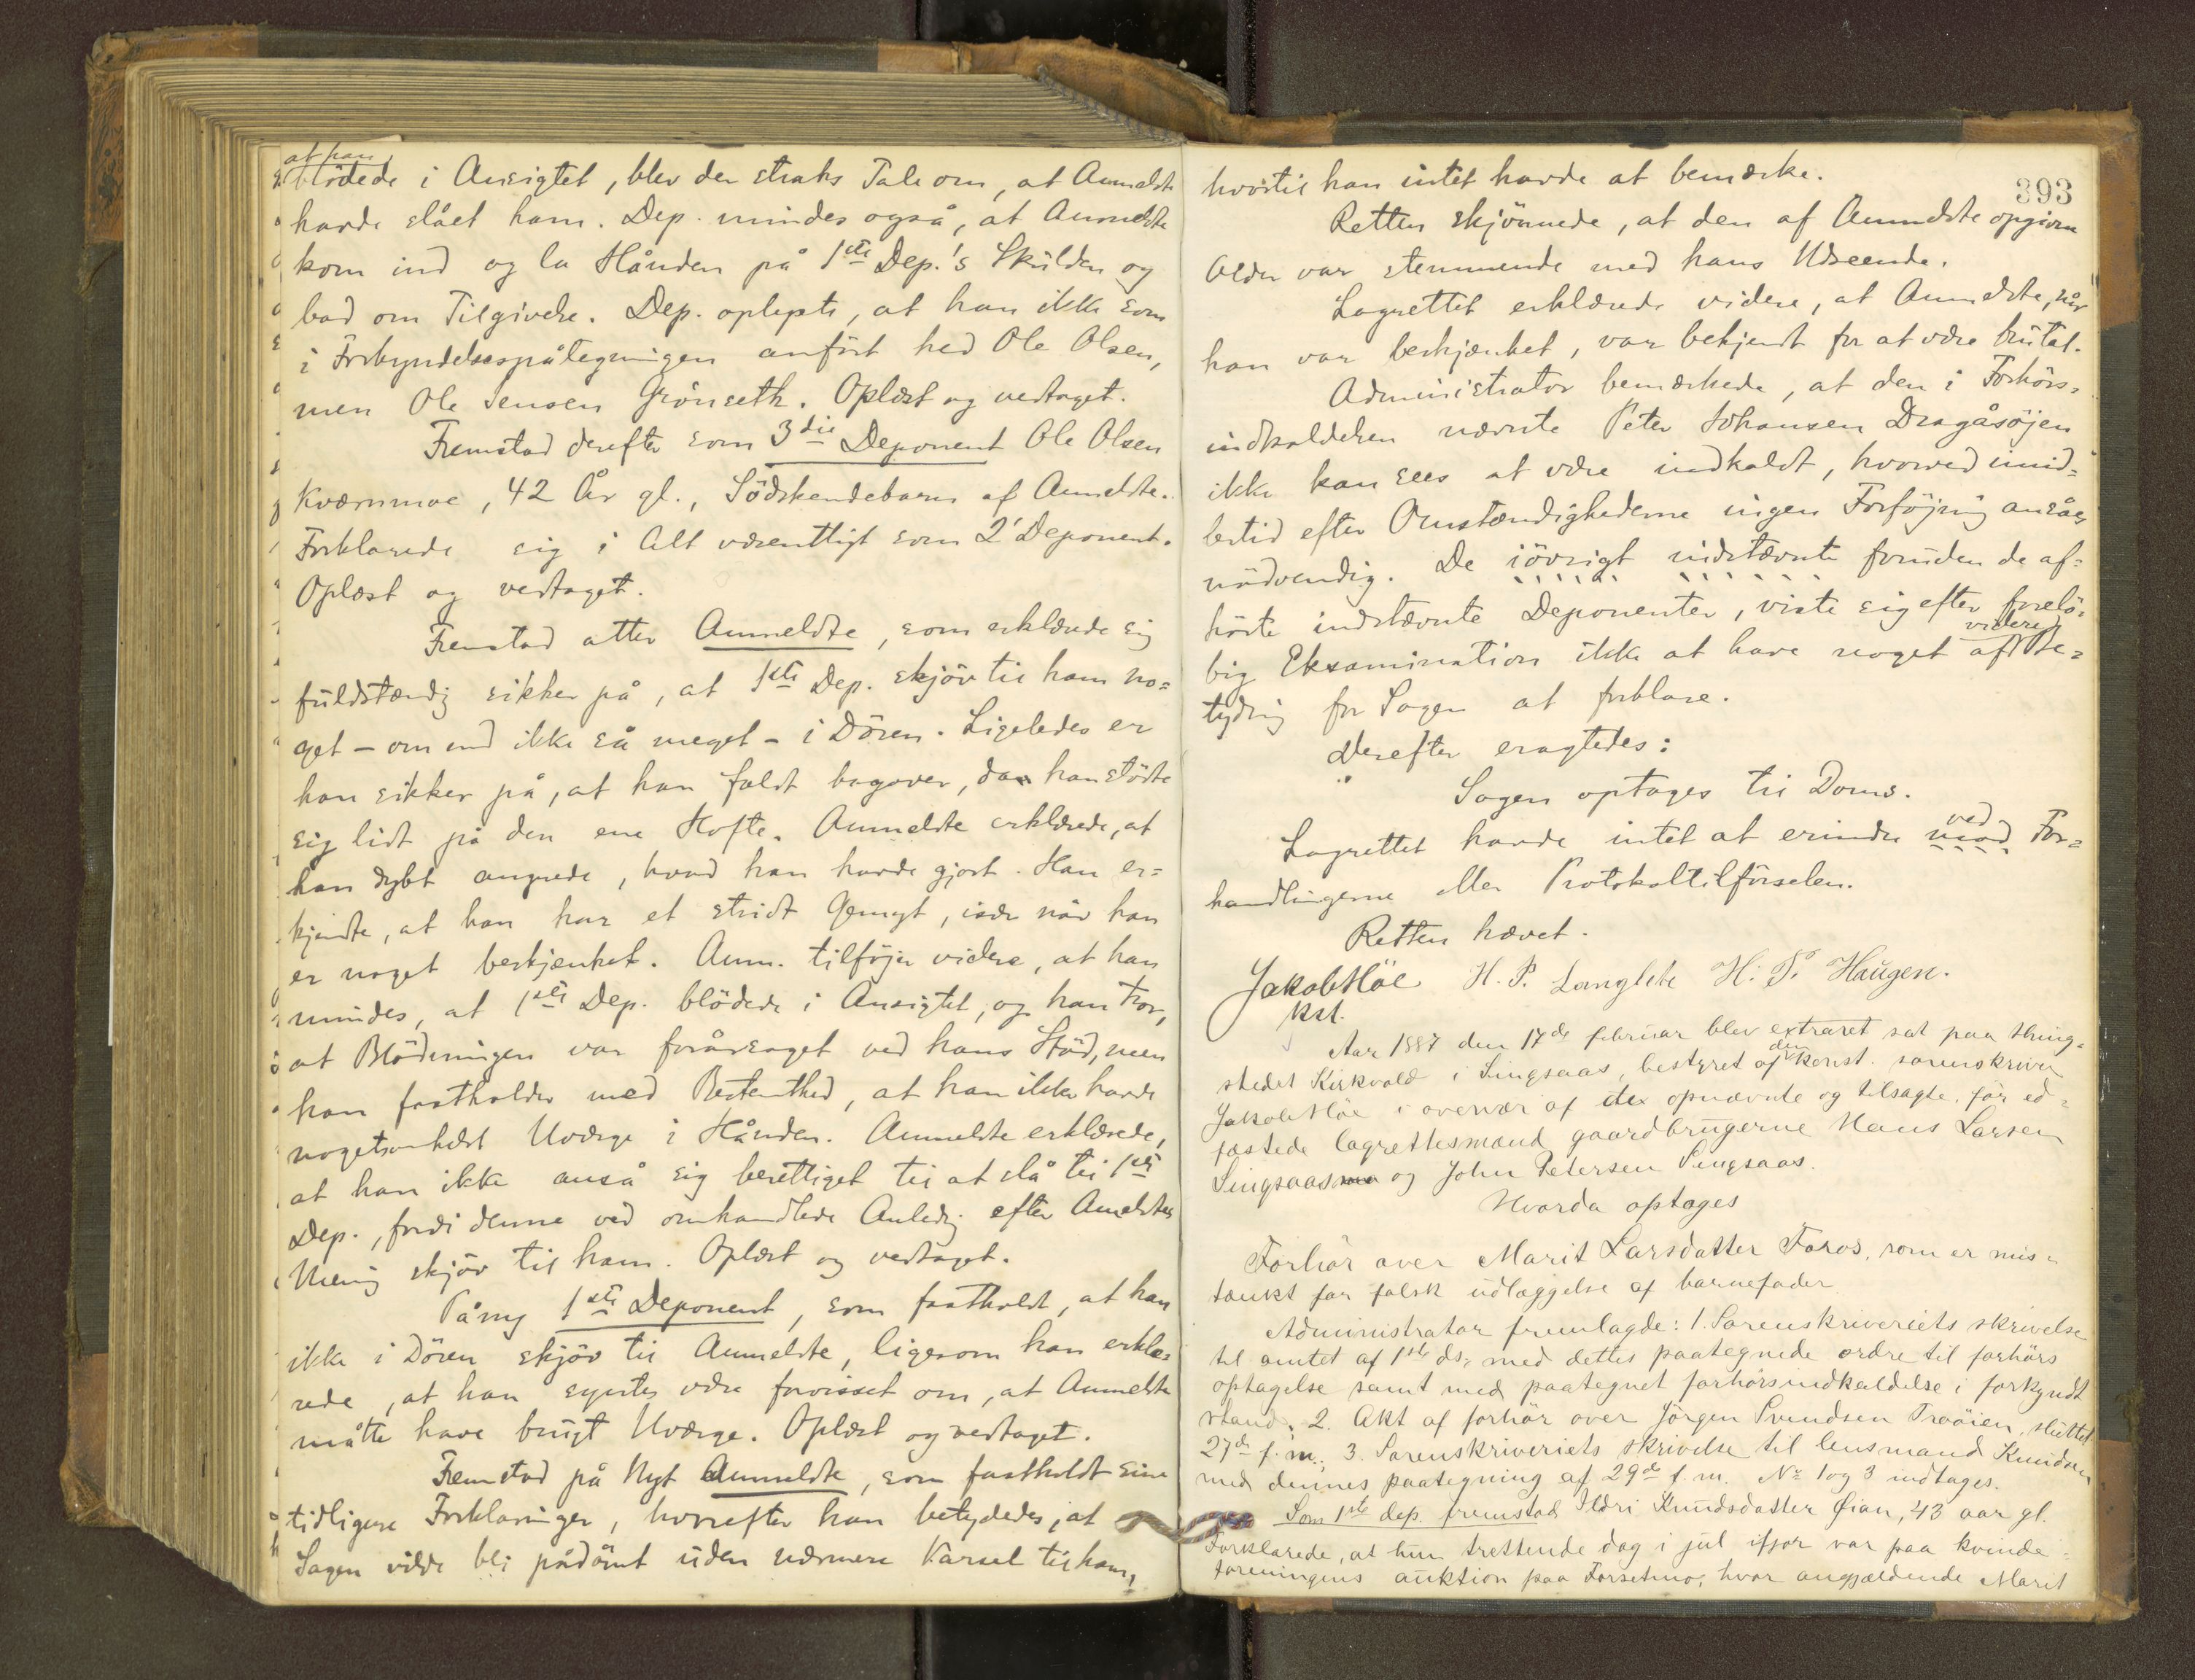 at han
blödede i Ansigtet, blev der straks Tale om, at Anmeldte
havde slået ham. Dep. mindes også, at Anmeldte
kom ind og la Hånden på 1ste Dep.'s Skulder og
bad om Tilgivelse. Dep. oplyste, at han ikke som
i Forkyndelsespåtegningen anført hed Ole Olsen,
men Ole Jensen Grönseth. Oplæst og vedtaget.
Fremstod derefter som 3die Deponent Ole Olsen
Kværnmoe, 42 År gl., Södskendebarn af Anmeldte.
Forklarede sig i Alt væsentligt som 2' Deponent.
Oplæst og vedtaget.
Fremstod atter Anmeldte, som erklærede sig
fuldstændig sikker på, at 1ste Dep. skjöv til ham no=
get – om end ikke så meget – i Dören. Ligeledes er
han sikker på, at han faldt bagover, da han stödte
sig lidt på den ene Hofte. Anmeldte erklærede, at
han dybt angrede, hvad han havde gjort. Han er=
kjendte, at han har et stridt Gemyt, især når han
er noget beskjænket. Anm. tilföjer videre, at han
mindes, at 1ste Dep. blödede i Ansigtet, og han tror,
at Blödningen var forårsaget ved hans Stöd, men
han fastholder med Bestemthed, at han ikke havde
nogetsomhelst Uværge i Hånden. Anmeldte erklærede,
at han ikke anså sig berettiget til at slå til 1ste
Dep., fordi denne ved omhandlede Anledng efter Anmeldtes
Mening skjöv til ham. Oplæst og vedtaget.
Påny 1ste Deponent, som fastholdt, at han
ikke i Dören skjöv til Anmeldte, ligesom han erklæ=
rede, at han syntes være forvisset om, at Anmeldte
måtte have brugt Uværge. Oplæst og vedtaget.
Fremstod på Nyt Anmeldte, som fastholdt sine
tidligere Forklaringer, hvorefter han betydedes, at
Sagen vilde bli pådömt uden nærmere Varsel til ham,
393
hvortil han intet havde at bemærke.
Retten skjönnede, at den af Anmeldte opgivne
Alder var stemmende med hans Udseende.
Lagrettet erklærede videre, at Anmeldte, når
han var beskjænket, var bekjendt for at være brutal.
Administrator bemærkede, at den i Forhörs=
indkaldelsen nævnte Peter Johansen Dragåsöjen
ikke kan sees at være indkaldt, hvorved imid=
lertid efter Omstændighederne ingen Forföjning ansåes
nödvendig. De iövrigt indstævnte foruden de af=
hörte indstævnte Deponenter, viste sig efter forelö=
big Eksamination ikke at have noget videre af Be=
tydning for Sagen at forklare.
Derefter eragtedes:
Sagen optages til Doms.
Lagrettet havde intet at erindre mod ved For=
handlingerne eller Protokoltilförselen.
Retten hævet.
Jakob Höe H. P. Langlete H. P. Haugen.
kst.
Aar 1887 den 17de februar blev extraret sat paa thing=
stedet Kirkvold i Singsaas, bestyret af den konst. sorenskriver
Jakob Höe i overvær af de opnævnte og tilsagte, før ed=
fæstede lagrettesmænd gaardbrugerne Hans Larsen
Singsaas og John Petersen Singsaas.
Hvorda optoges
Forhör over Marit Larsdatter Foros, som er mis=
tænkt for falsk udlæggelse af barnefader
Administrator fremlagde: 1. Sorenskriveriets skrivelse
til amtet af 1ste ds, med dettes paategnede ordre til forhörs
optagelse samt med paategnet forhörsindkaldelse i forkyndt
stand. 2. Akt af forhör over Jörgen Svendsen Troöien, sluttet
27de f.m., 3. Sorenskriveriets skrivelse til lensmand Knudsen
med dennes paategning af 29de f.m. No 1 og 3 indtages.
Som 1ste dep. fremstod Ildri Knudsdatter Øian, 43 aar gl.
Forklarede, at hun trettende dag i jul ifjor var paa kvinde=
foreningens auktion paa Forsetmo, hvor angjældende Marit